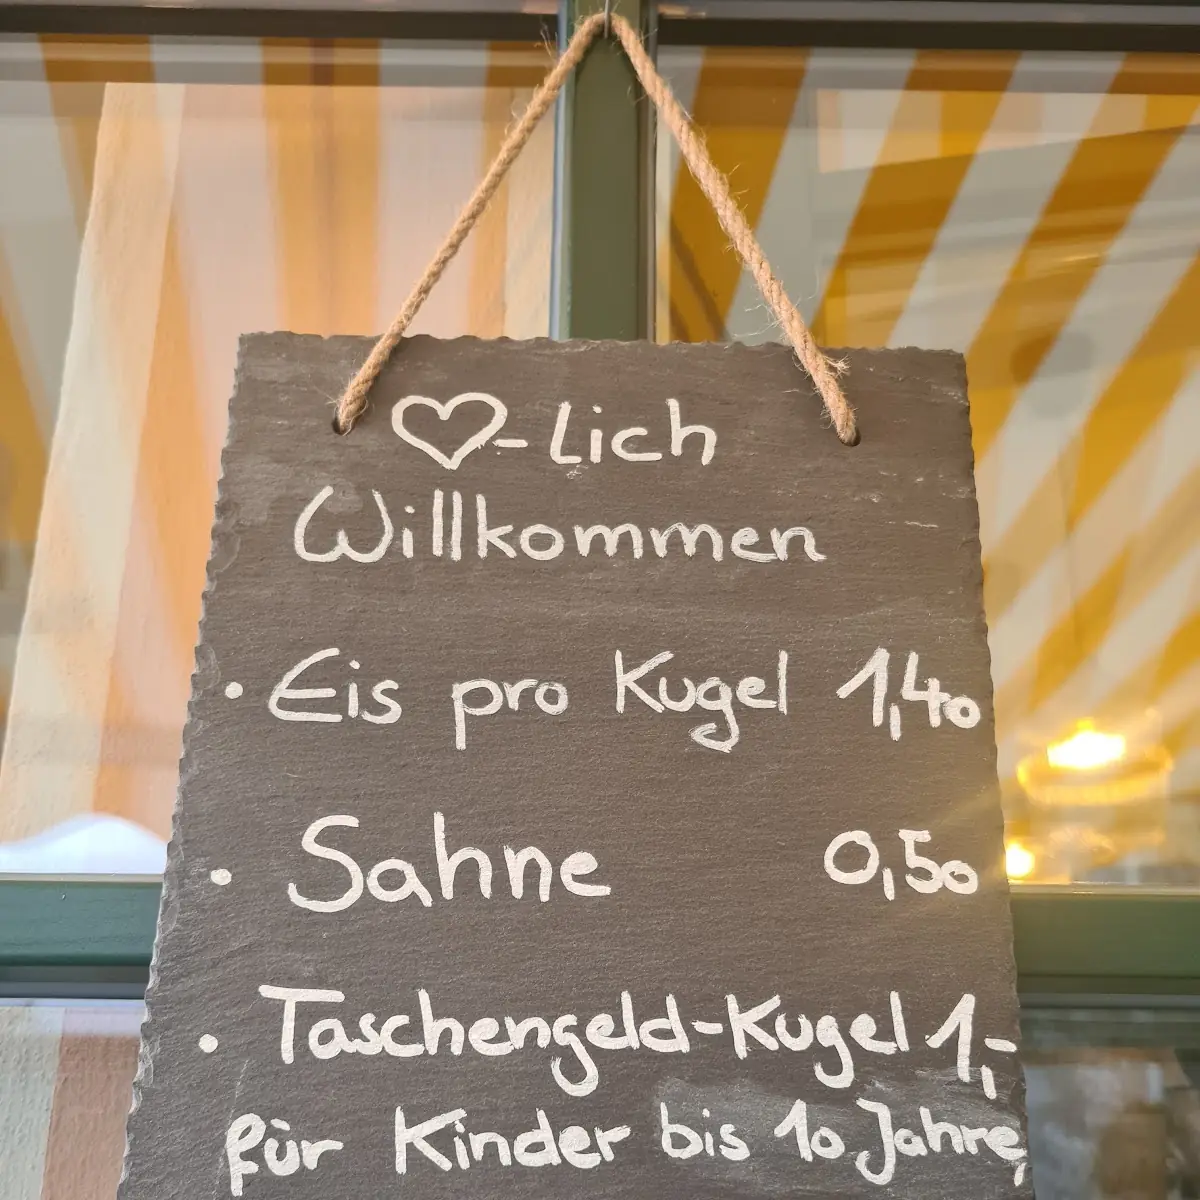 ♡-lich
Willkommen
• Eis pro Kugel 1,40
• Sahne 0,50
• Taschengeld-Kugel 1,-
für Kinder bis 10 Jahre,